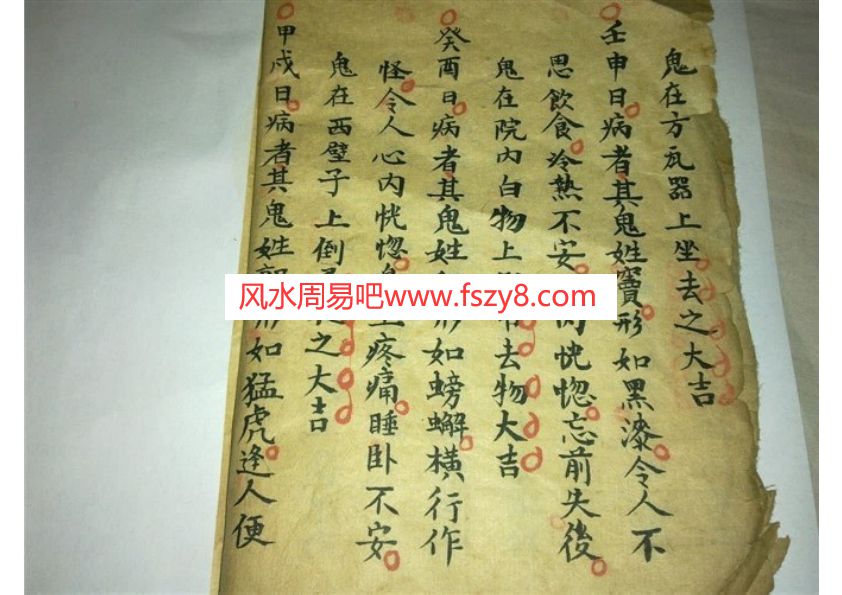 鬼在方瓦器上坐去之大吉
壬申日病者其鬼姓竇形如黑漆令人不
思飲食冷熱不安 恍惚忘前失後
鬼在院内白物上 去物大吉
癸酉日病者其鬼姓 形如螃蠏橫行作
怪令人心内恍惚 疼痛睡卧不安
鬼在西壁子上倒 之大吉
甲戍日病者其鬼姓 形如猛虎逢人便
风水周易吧www.fszy8.com